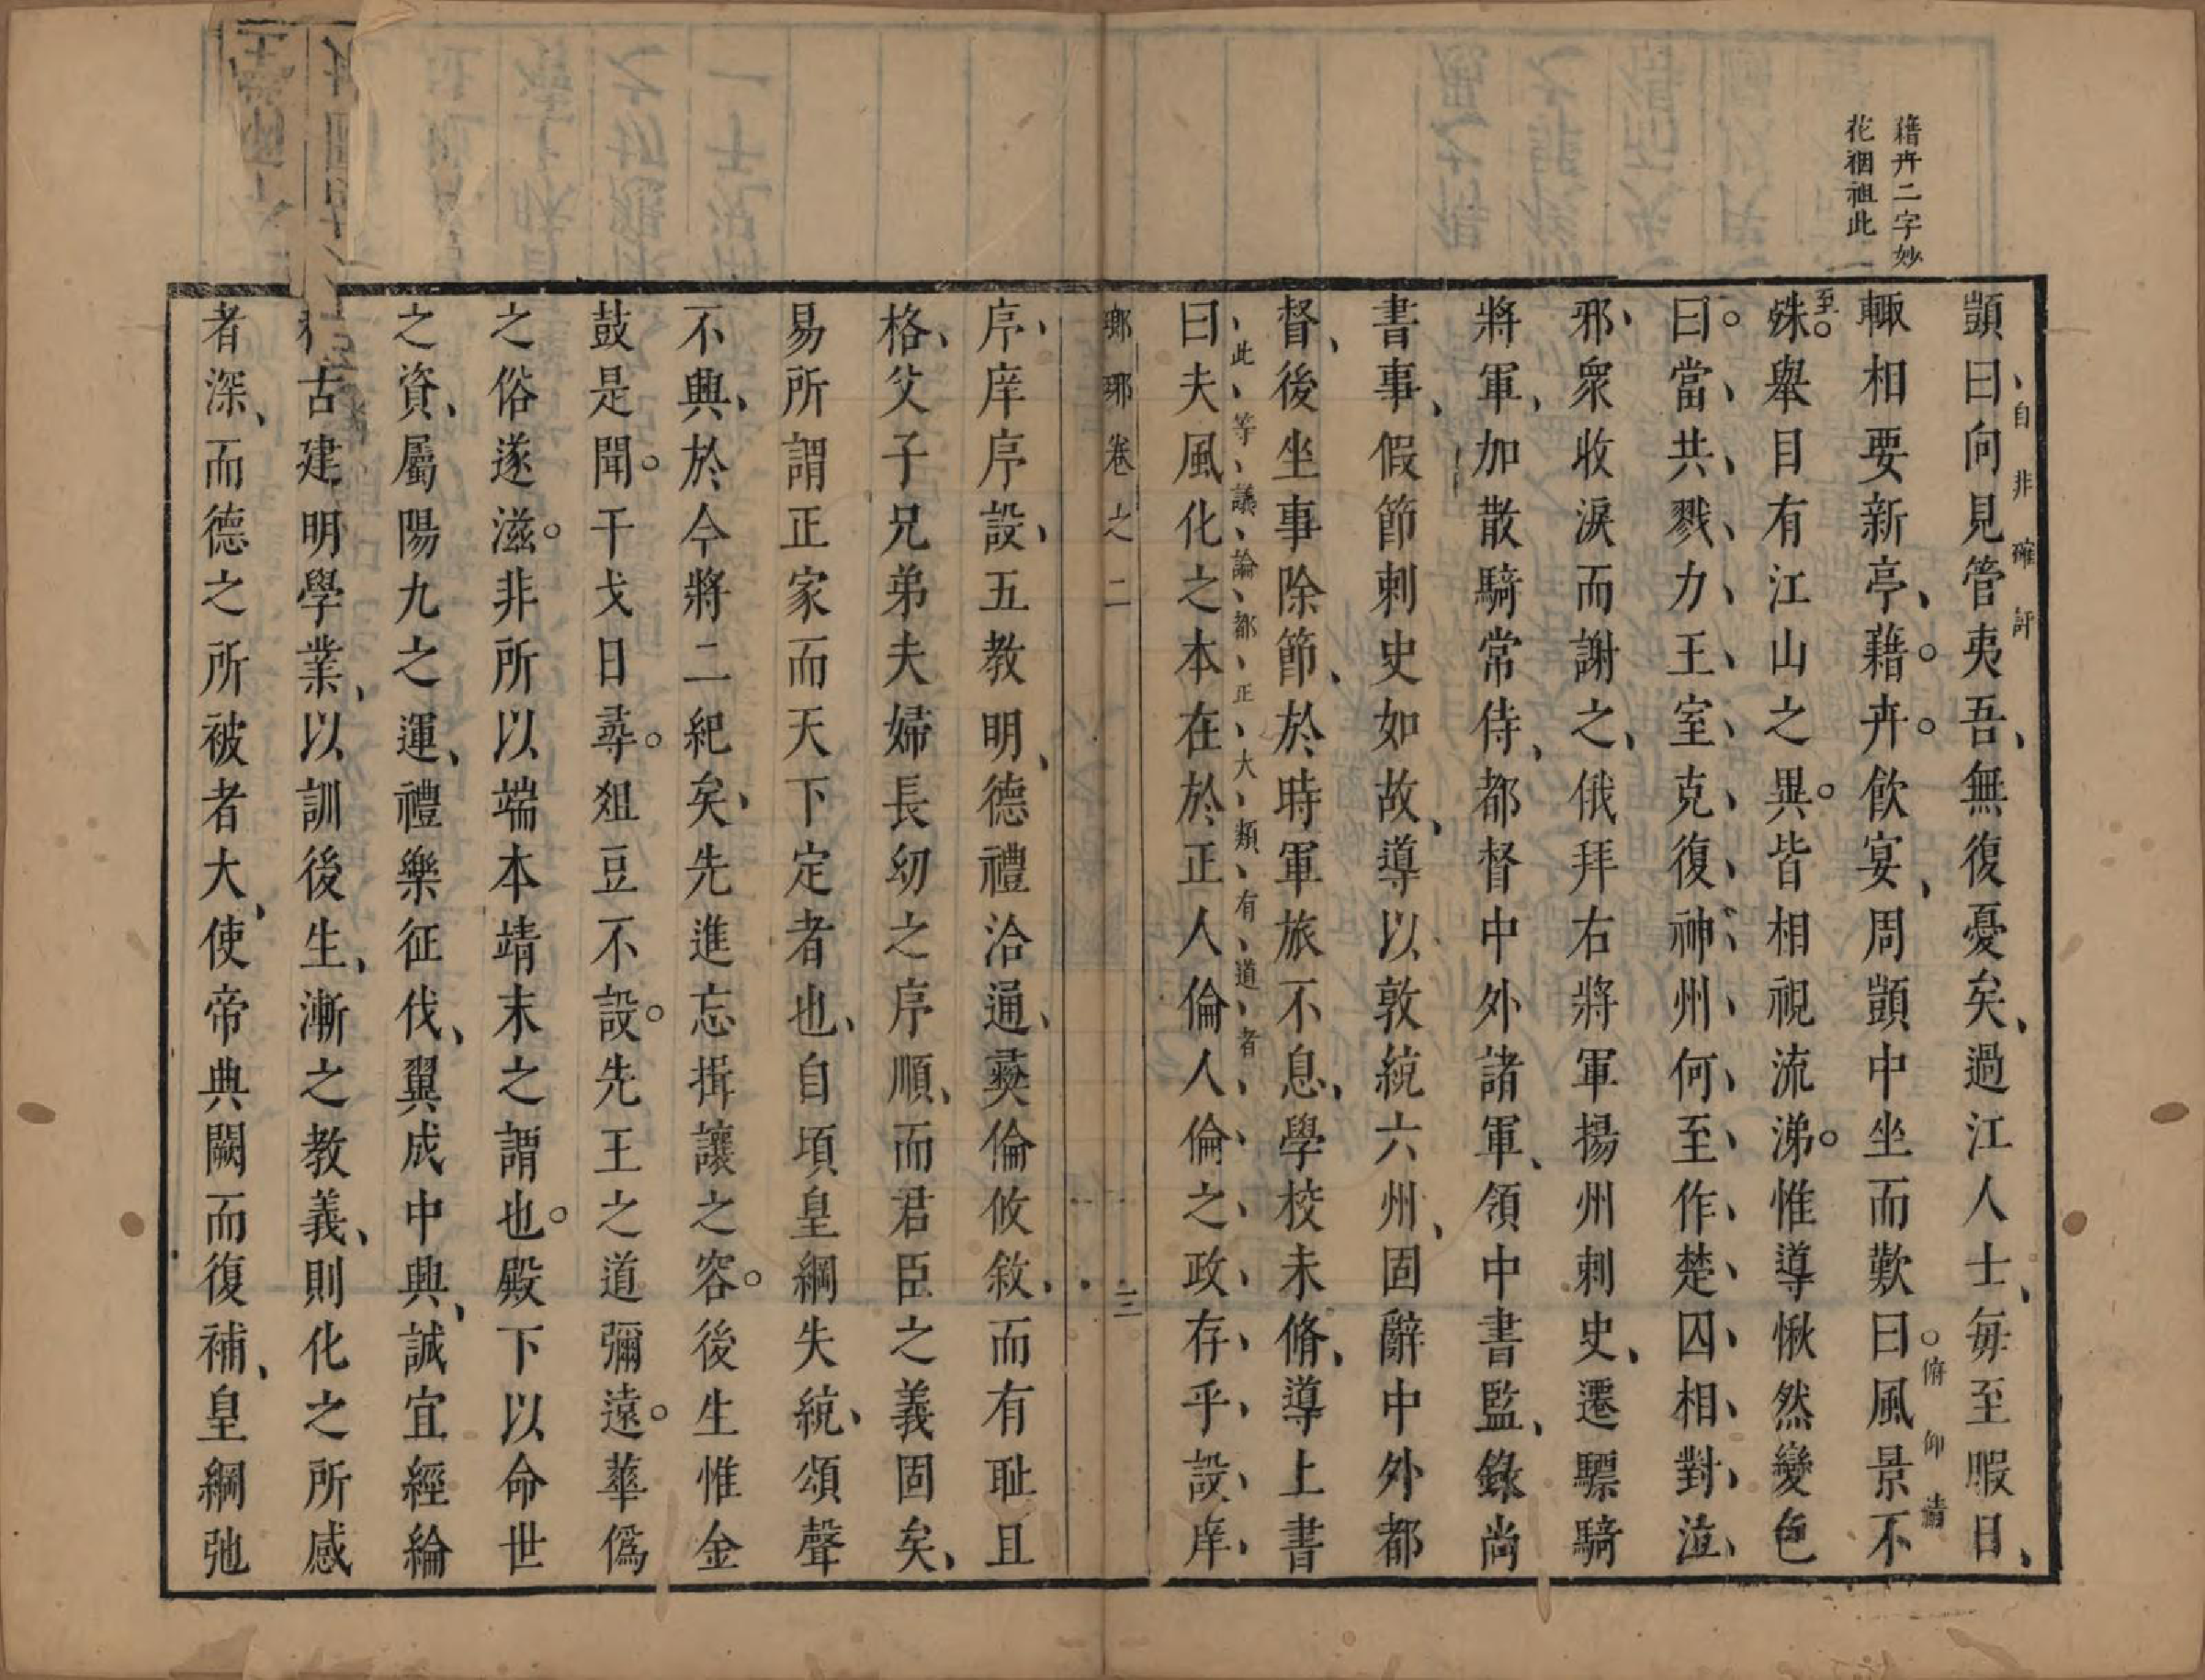 籍卉二字妙
花裀祖此
顗曰向見管夷吾無復憂矣過江人士每至暇日
自非確評
輙相要新亭藉卉飲宴周顗中坐而歎曰風景不
俯仰淒
殊舉目有江山之異皆相視流涕惟導愀然變色
至
曰當共戮力王室克復神州何至作楚囚相對泣
邪衆收淚而謝之俄拜右將軍揚州刺史遷驃騎
將軍加散騎常侍都督中外諸軍領中書監錄尚
書事假節刺史如故導以敦統六州固辭中外都
督後坐事除節於時軍旅不息學校未脩導上書
此等議論都正大類有道者
曰夫風化之本在於正人倫人倫之政存乎設庠
瑯琊卷之二 三
序庠序設五教明德禮洽通彝倫攸敘而有耻且
格父子兄弟夫婦長幼之序順而君臣之義固矣
易所謂正家而天下定者也自頃皇綱失統頌聲
不興於今將二紀矣先進忘揖讓之容後生惟金
鼓是聞干戈日尋俎豆不設先王之道彌遠華僞
之俗遂滋非所以端本靖末之謂也殿下以命世
之資屬陽九之運禮樂征伐翼成中興誠宜經綸
古建明學業以訓後生漸之教義則化之所感
者深而德之所被者大使帝典闕而復補皇綱弛